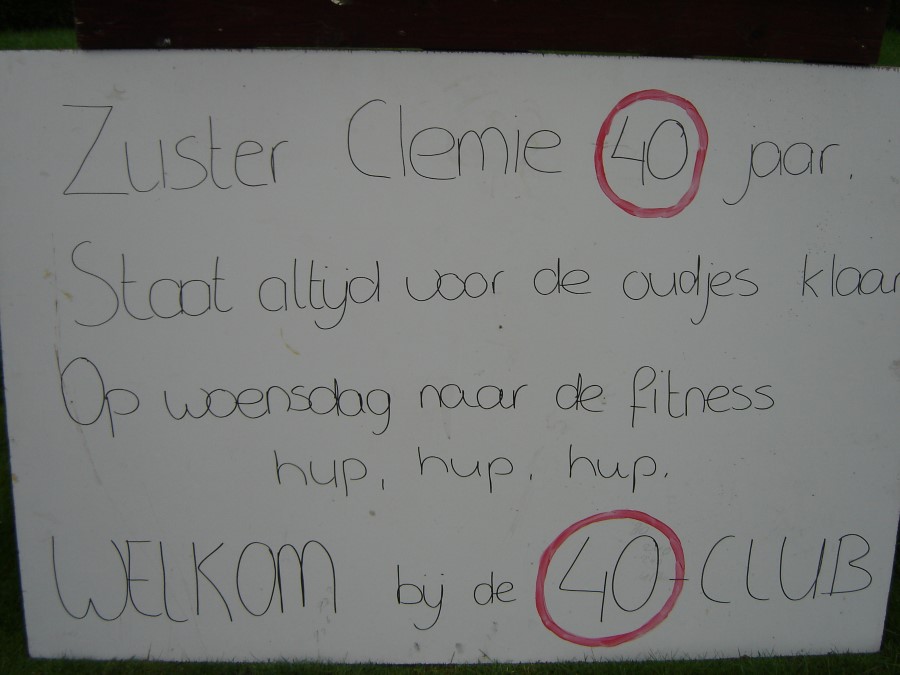 Zuster Clemie 40 jaar.
Staat altijd voor de oudjes klaar
Op woensdag naar de fitness
hup, hup, hup.
WELKOM bij de 40-CLUB